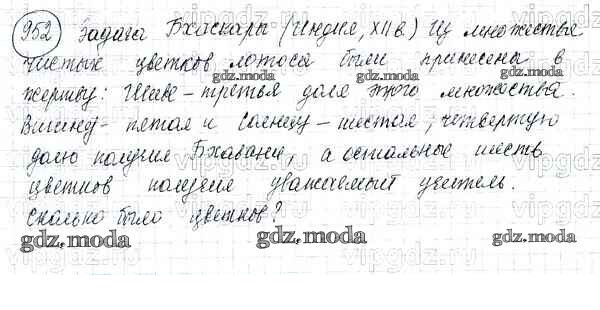 952 Задача Бхаскары (Индия, XII в.) Из множества
чистых цветков лотоса были принесены в
жертву: Шиве - третья доля этого множества.
Вишну - пятая и Солнцу - шестая, четвертую
долю получил Бхавани, а остальные шесть
цветков получил уважаемый учитель.
Сколько было цветков?
gdz.moda
gdz.moda
gdz.moda
gdz.moda
gdz.moda
gdz.moda
gdz.moda
gdz.moda
gdz.moda